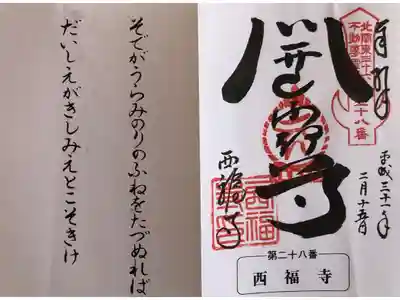 奉拝
平成三十一年
二月十五日
北関東三十六
不動尊霊
二十八番
不動尊
西福寺
第二十八番
西福寺
そでがうらみのりのふねをたづぬれば
だいしえがきしみえとこそきけ